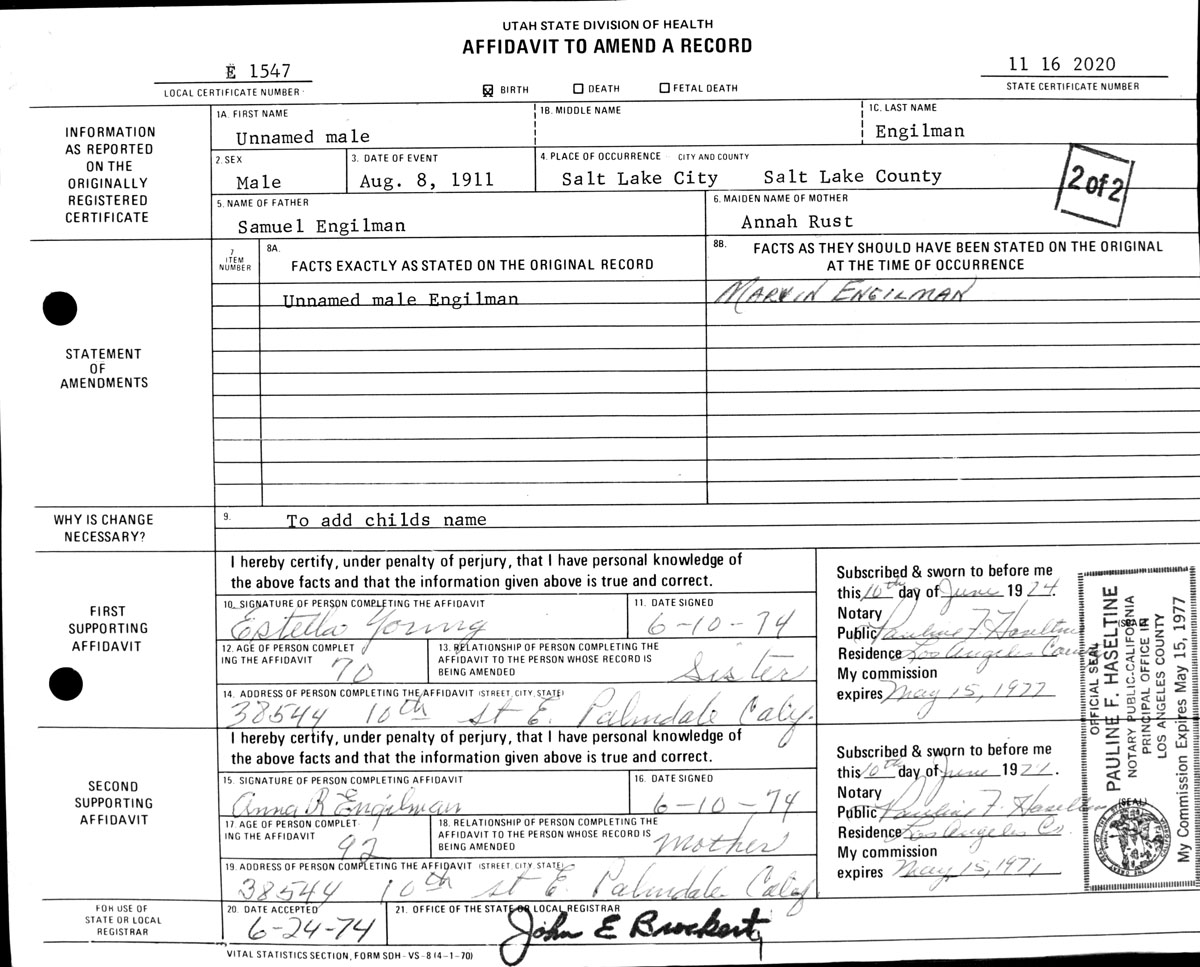 UTAH STATE DIVISION OF HEALTH
AFFIDAVIT TO AMEND A RECORD
E 1547
LOCAL CERTIFICATE NUMBER
☒ BIRTH ☐ DEATH ☐ FETAL DEATH
11 16 2020
STATE CERTIFICATE NUMBER
INFORMATION
AS REPORTED
ON THE
ORIGINALLY
REGISTERED
CERTIFICATE
1A. FIRST NAME
Unnamed male
1B. MIDDLE NAME
1C. LAST NAME
Engilman
2. SEX
Male
3. DATE OF EVENT
Aug. 8, 1911
4. PLACE OF OCCURRENCE CITY AND COUNTY
Salt Lake City Salt Lake County
2 of 2
5. NAME OF FATHER
Samuel Engilman
6. MAIDEN NAME OF MOTHER
Annah Rust
STATEMENT
OF
AMENDMENTS
7
ITEM
NUMBER
8A.
FACTS EXACTLY AS STATED ON THE ORIGINAL RECORD
8B. FACTS AS THEY SHOULD HAVE BEEN STATED ON THE ORIGINAL
AT THE TIME OF OCCURRENCE
Unnamed male Engilman
MARVIN ENGILMAN
WHY IS CHANGE
NECESSARY?
9. To add childs name
FIRST
SUPPORTING
AFFIDAVIT
I hereby certify, under penalty of perjury, that I have personal knowledge of
the above facts and that the information given above is true and correct.
10. SIGNATURE OF PERSON COMPLETING THE AFFIDAVIT
Estella Young
11. DATE SIGNED
6-10-74
12. AGE OF PERSON COMPLET
ING THE AFFIDAVIT
70
13. RELATIONSHIP OF PERSON COMPLETING THE
AFFIDAVIT TO THE PERSON WHOSE RECORD IS
BEING AMENDED
Sister
14. ADDRESS OF PERSON COMPLETING THE AFFIDAVIT (STREET, CITY, STATE)
38544 10th st E. Palmdale Calif.
Subscribed & sworn to before me
this 10th day of June 1974.
Notary
Public Pauline F. Haseltine
(SEAL)
Residence Los Angeles County
My commission
expires May 15, 1977
SECOND
SUPPORTING
AFFIDAVIT
I hereby certify, under penalty of perjury, that I have personal knowledge of
the above facts and that the information given above is true and correct.
15. SIGNATURE OF PERSON COMPLETING AFFIDAVIT
Anna R Engilman
16. DATE SIGNED
6-10-74
17. AGE OF PERSON COMPLET
ING THE AFFIDAVIT
92
18. RELATIONSHIP OF PERSON COMPLETING THE
AFFIDAVIT TO THE PERSON WHOSE RECORD IS
BEING AMENDED
Mother
19. ADDRESS OF PERSON COMPLETING THE AFFIDAVIT (STREET, CITY, STATE)
38544 10th st E. Palmdale Calif
Subscribed & sworn to before me
this 10th day of June 1974.
Notary
Public Pauline F. Haseltine
(SEAL)
Residence Los Angeles Co.
My commission
expires May 15, 1977
OFFICIAL SEAL
PAULINE F. HASELTINE
NOTARY PUBLIC-CALIFORNIA
PRINCIPAL OFFICE IN
LOS ANGELES COUNTY
My Commission Expires May 15, 1977
FOR USE OF
STATE OR LOCAL
REGISTRAR
20. DATE ACCEPTED
6-24-74
21. OFFICE OF THE STATE OR LOCAL REGISTRAR
John E Brockert
VITAL STATISTICS SECTION, FORM SDH-VS-8 (4-1-70)